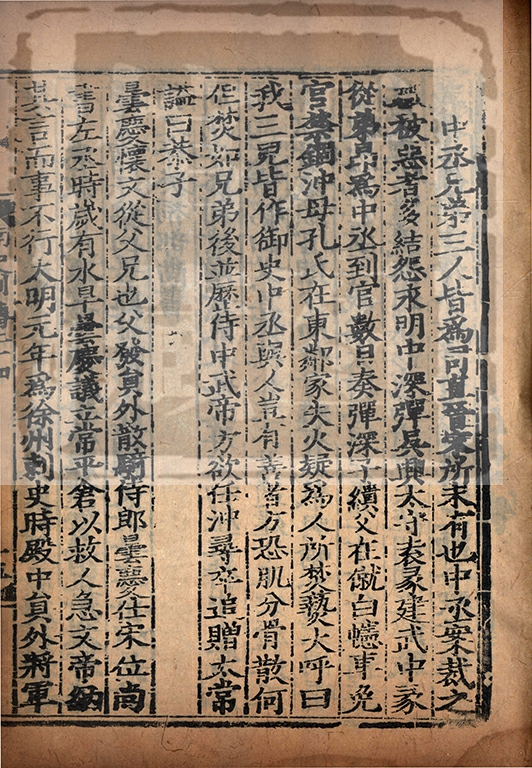 中丞兄弟三人皆爲司直晉宋所未有也中丞案裁之
職被惡者多結怨永明中深彈吳興太守袁彖建武中彖
從弟昂爲中丞到官數日奏彈深子繢父在僦白幰車免
官禁錮沖母孔氏在東鄰家失火疑爲人所焚爇大呼曰
我三兒皆作御史中丞與人豈有善者方恐肌分骨散何
但焚如兄弟後並歷侍中武帝方欲任沖尋卒追贈太常
謚曰恭子
曇慶懷文從父兄也父發員外散騎侍郎曇慶仕宋位尚
書左丞時歲有水旱曇慶議立常平倉以救人急文帝納
其言而事不行大明元年爲徐州刺史時殿中員外將軍